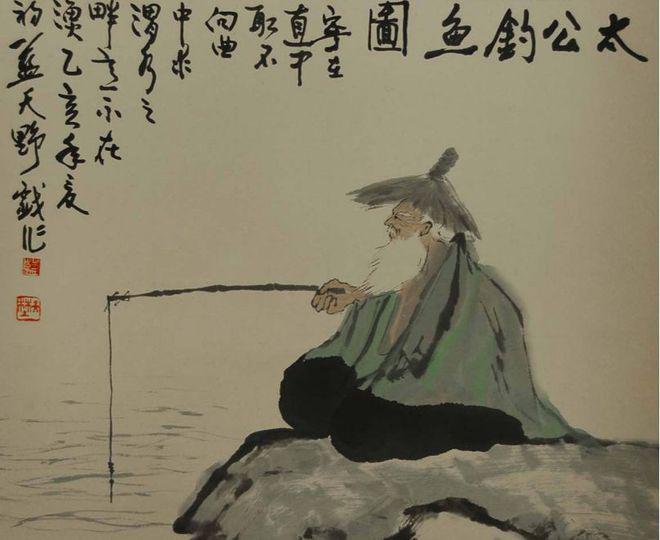 太公釣魚圖
寧在
直中
取不
向曲
中求
渭水之
畔意不在
漁乙亥年夏
初藍天野戲作